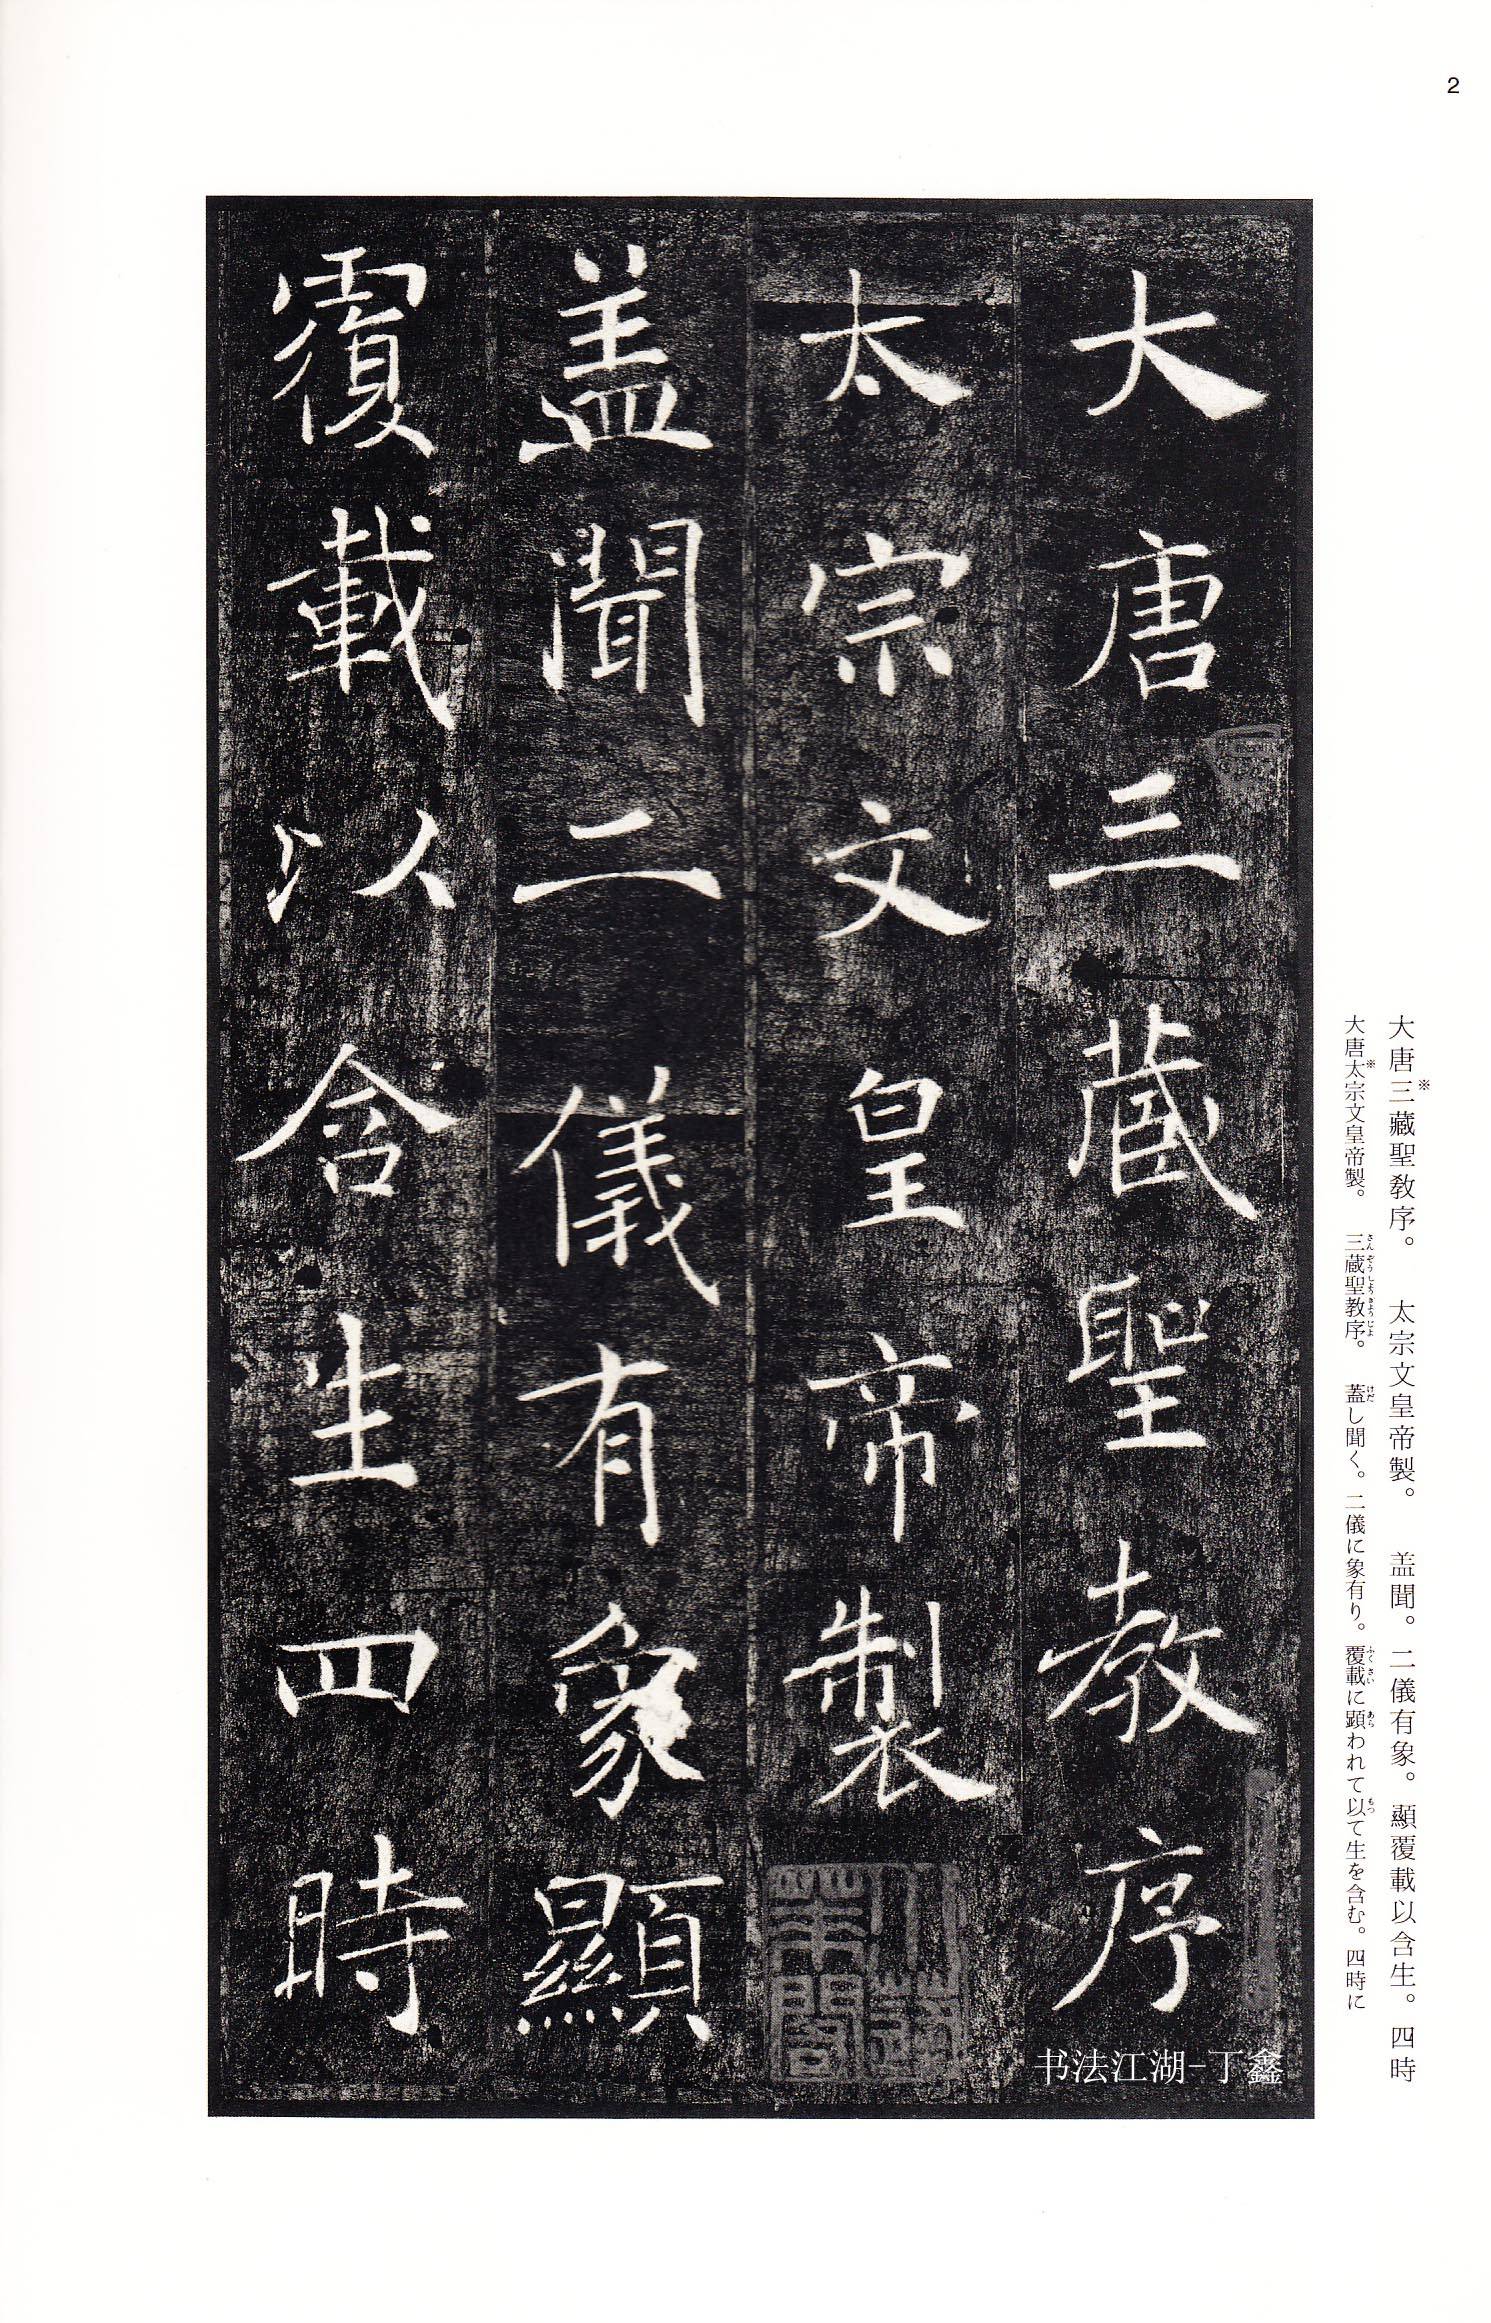 2
大唐三藏聖教序
太宗文皇帝製
盖聞二儀有象顯
覆載以含生四時
大唐三藏聖教序。　太宗文皇帝製。　盖聞。二儀有象。顯覆載以含生。四時
大唐太宗文皇帝製。　三蔵聖教序。　蓋し聞く。二儀に象有り。覆載に顕われて以て生を含む。四時に
书法江湖-丁鑫